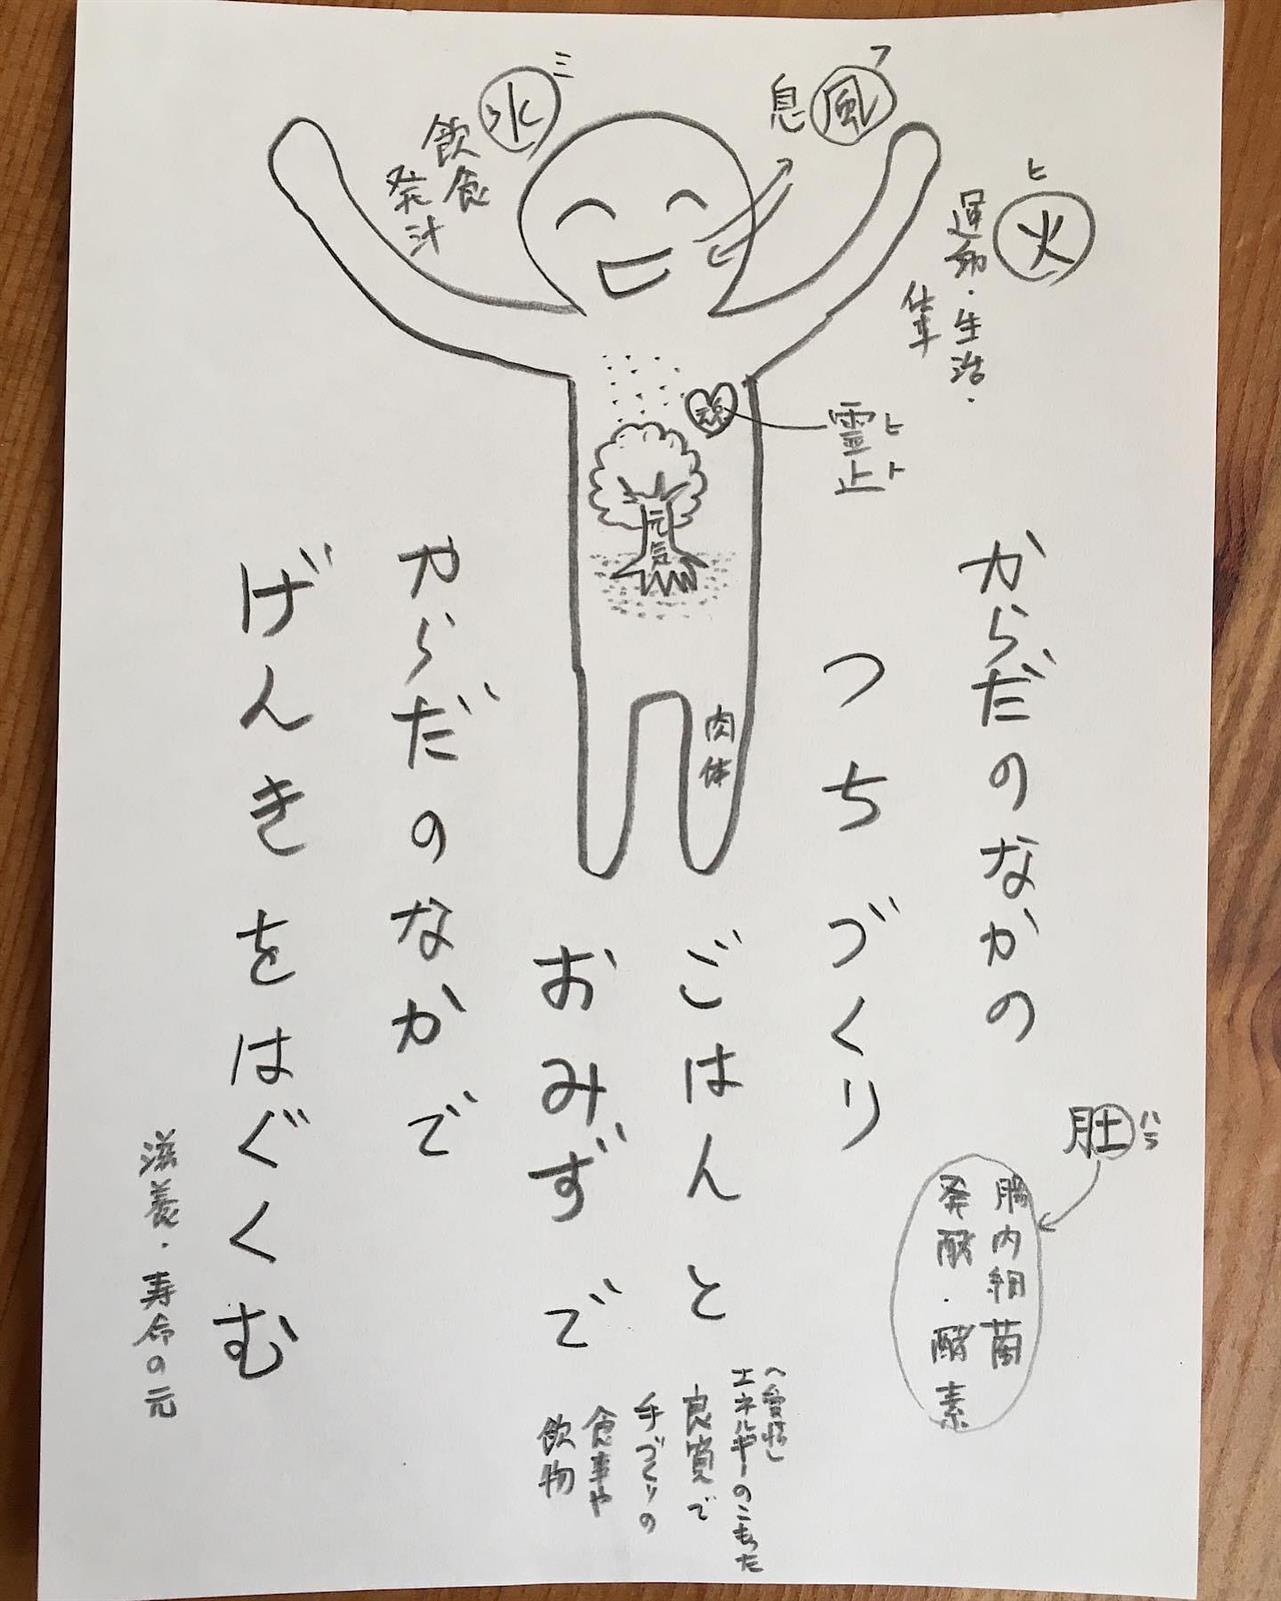 水 ミ
飲食
発汗
風 フ
息
火 ヒ
運動・生活・
仕事
魂
霊止 ヒト
元気
肉体
からだのなかの
つちづくり
ごはんと
おみずで
からだのなかで
げんきをはぐくむ
肚 ハラ
腸内細菌
発酵・酵素
エネルギーのこもった
良質で
手づくりの
食事や
飲物
滋養・寿命の元